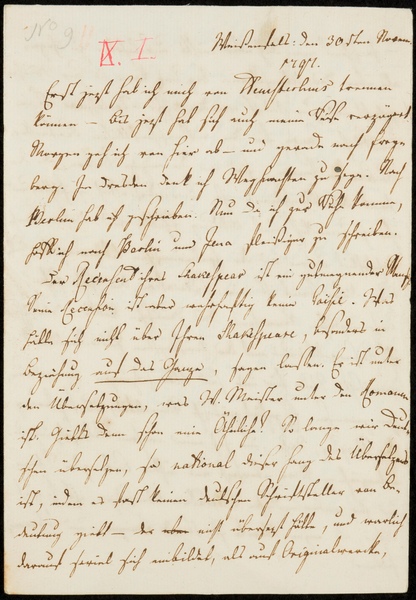 No 9
X. I.
Weißenfels: den 30sten Novem.
1797.
Erst jezt hab ich mich von trennen
können – bis jezt hat sich auch meine Reise verzögert
Morgen geh ich von hier ab – und gerade nach Frey-
berg. In Dresden denk ich Weyhnachten zu seyn. Nach
Berlin hab ich geschrieben. Nun da ich zur Ruhe komme,
hoff ich nach Berlin und Jena fleißiger zu schreiben.
Der Recensent Ihres Shakespear ist ein gutmeynender Mensch
Seine Recension ist aber wahrhaftig keine Poësie. Was
hätte sich nicht über Ihren Shakespeare, besonders in
Beziehung auf das Ganze, sagen lassen. Er ist unter
den Übersetzungen, was W. Meister unter den Romanen
ist. Giebts denn schon eine Ähnliche? So lange wir Deut-
schen übersetzen, so national dieser Hang des Übersetzens
ist, indem es fast keinen deutschen Schriftsteller von Be-
deutung giebt – der nicht übersezt hätte, und warlich
darauf soviel sich einbildet, als auf Originalwercke,